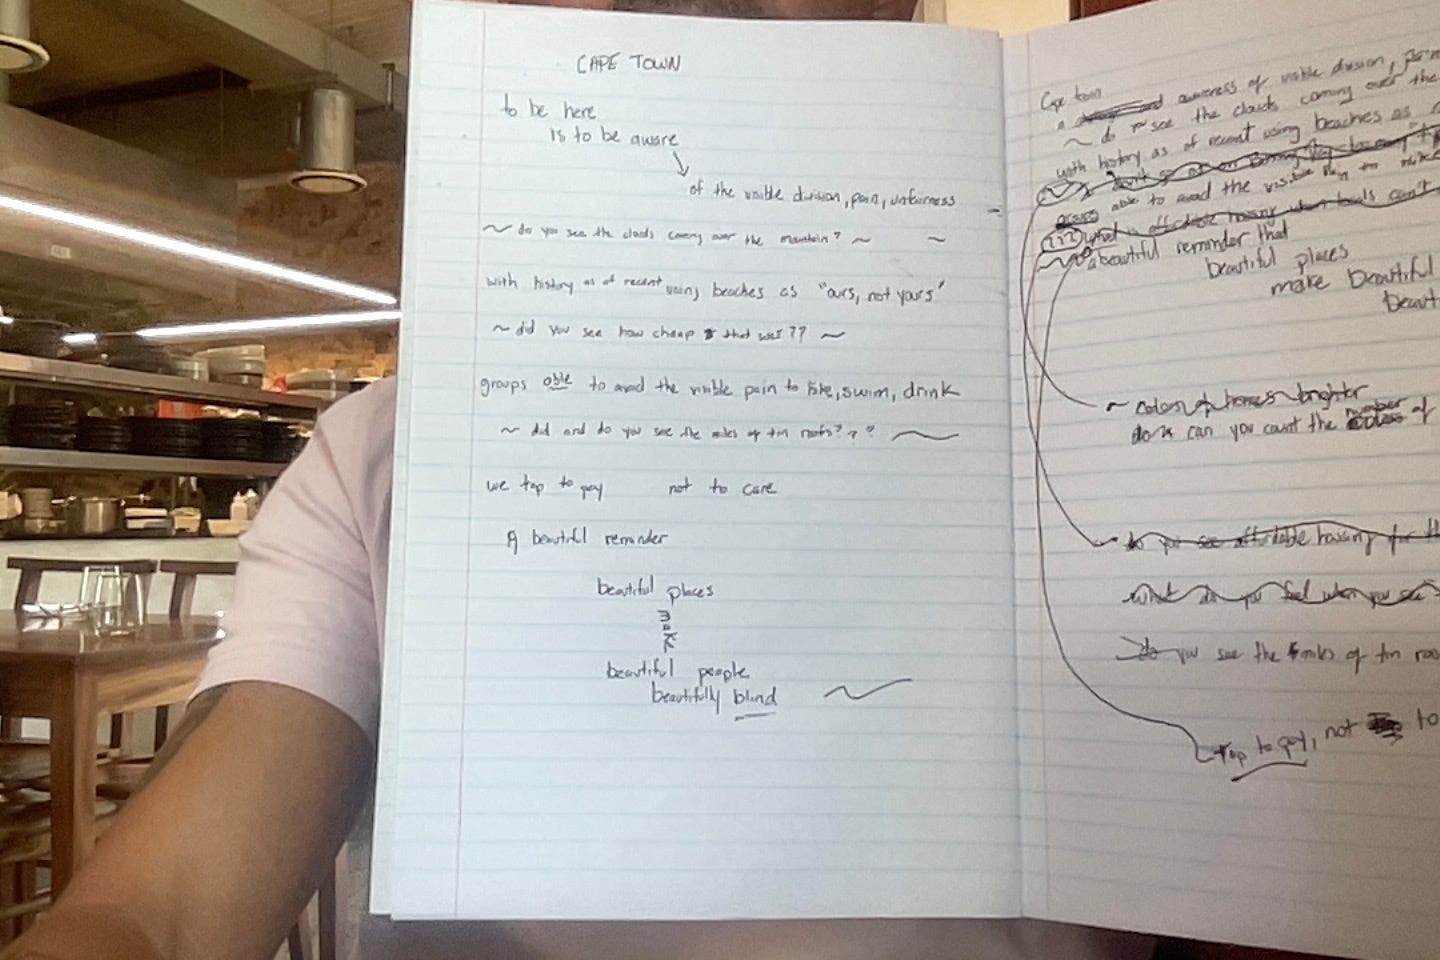 CAPE TOWN
to be here
is to be aware
of the visible division, pain, unfairness
~ do you see the clouds coming over the mountain? ~ ~
with history as of recent using beaches as "ours, not yours"
~ did you see how cheap that was?? ~
groups able to avoid the visible pain to hike, swim, drink
~ did and do you see the miles of tin roofs??? ~
we tap to pay not to care
A beautiful reminder
beautiful places
make
beautiful people
beautifully blind ~
Cape town
a awareness of visible division, pain
~ do see the clouds coming over the
with history as of recent using beaches as
groups able to avoid the visible pain to hike
??? what is affordable housing when locals can't
a beautiful reminder that
beautiful places
make beautiful
beaut
~ colors of homes brighter
can you count the number of
do you see affordable housing for th
what do you feel when you see
do you see the miles of tin roo
tap to pay, not to